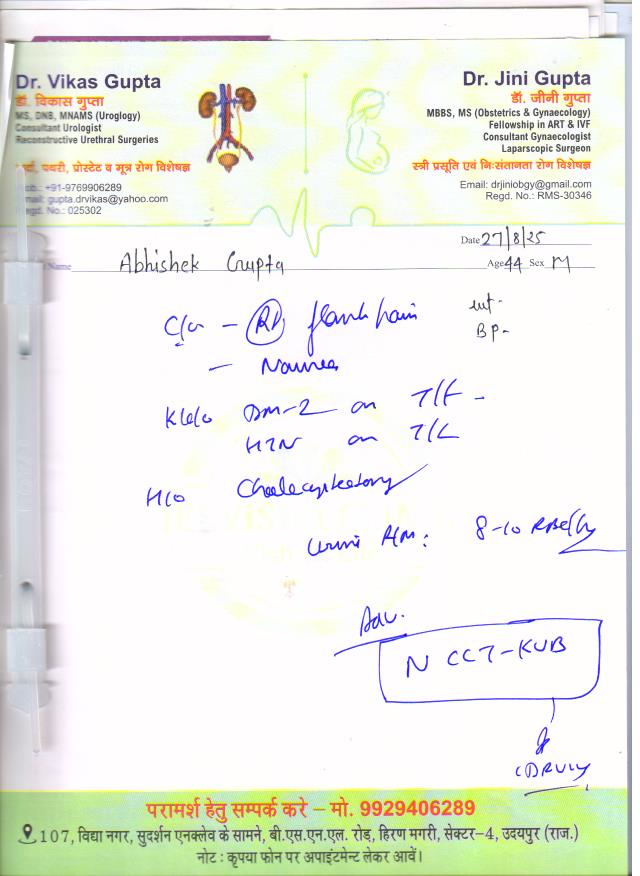 Dr. Vikas Gupta
डॉ. विकास गुप्ता
MS, DNB, MNAMS (Uroglogy)
Consultant Urologist
Reconstructive Urethral Surgeries
पथरी, प्रोस्टेट व मूत्र रोग विशेषज्ञ
Mob.: +91-9769906289
Email: gupta.drvikas@yahoo.com
Regd. No.: 025302
Dr. Jini Gupta
डॉ. जीनी गुप्ता
MBBS, MS (Obstetrics & Gynaecology)
Fellowship in ART & IVF
Consultant Gynaecologist
Laparscopic Surgeon
स्त्री प्रसूति एवं निःसंतानता रोग विशेषज्ञ
Email: drjiniobgy@gmail.com
Regd. No.: RMS-30346
Date 27/8/25
Name Abhishek Gupta Age 44 Sex M
C/o - (Rt) flank pain
wt-
BP-
- Nausea
K/c/o DM-2 on T/t -
HTN on T/t
H/o Cholecystectomy
Urine R/M: 8-10 RBC/
Adv.
NCCT-KUB
परामर्श हेतु सम्पर्क करे – मो. 9929406289
107, विद्या नगर, सुदर्शन एनक्लेव के सामने, बी.एस.एन.एल. रोड़, हिरण मगरी, सेक्टर-4, उदयपुर (राज.)
नोट : कृपया फोन पर अपाइंटमेन्ट लेकर आवें।